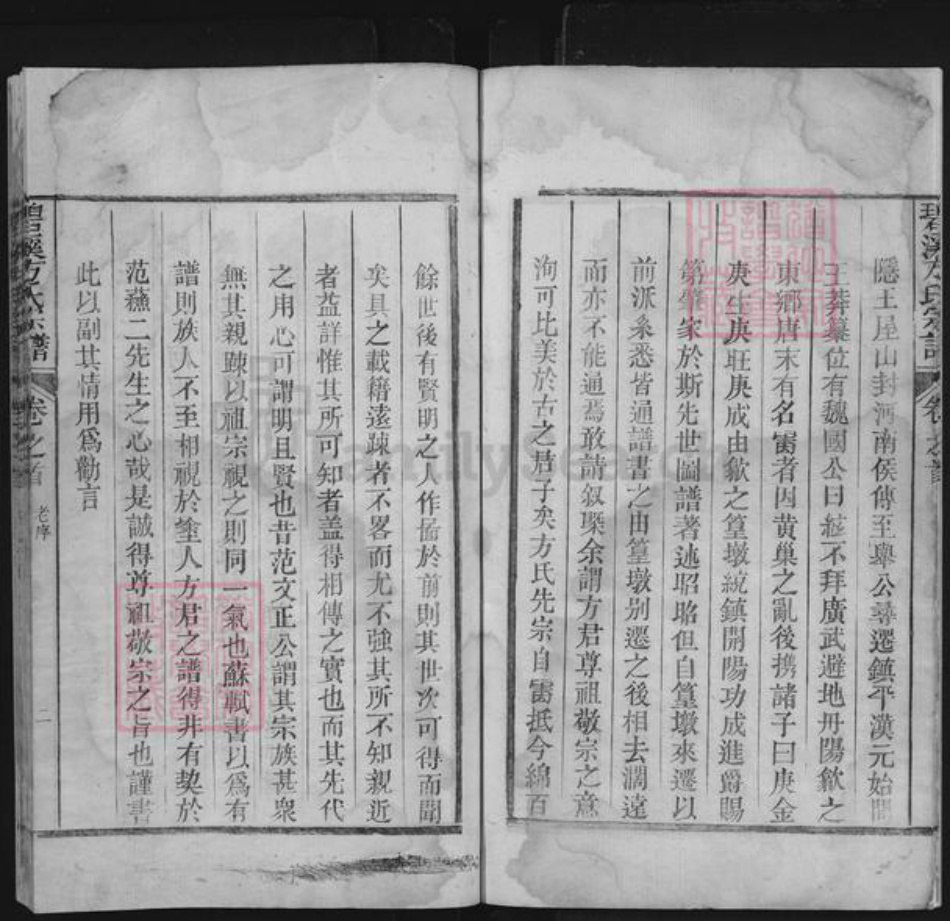 碧溪方氏宗譜
卷之首
隱王屋山封河南侯傳至舉公尋遷鎮平漢元始間
王莽篡位有魏國公曰紘不拜廣武避地丹陽歙之
東鄉唐末有名雷者因黄巢之亂後携諸子曰庚金
庚生庚旺庚成由歙之篁墩統鎮開陽功成進爵賜
第肇家於斯先世圖譜著述昭昭但自篁墩來遷以
前派系悉皆通譜書之由篁墩别遷之後相去濶遠
而亦不能通焉敢請叙㮣余謂方君尊祖敬宗之意
洵可比美於古之君子矣方氏先宗自雷抵今綿百
餘世後有賢明之人作啚於前則其世次可得而聞
矣具之載籍遠踈者不畧而尤不強其所不知親近
者益詳惟其所可知者盖得相傳之實也而其先代
之用心可謂明且賢也昔范文正公謂其宗族甚衆
無其親踈以祖宗視之則同一氣也蘇軾書以爲有
譜則族人不至相視於塗人方君之譜得非有契於
范蘇二先生之心哉是誠得尊祖敬宗之旨也謹書
此以副其情用爲勸言
碧溪方氏宗譜
卷之首
老序
二
FamilySearch